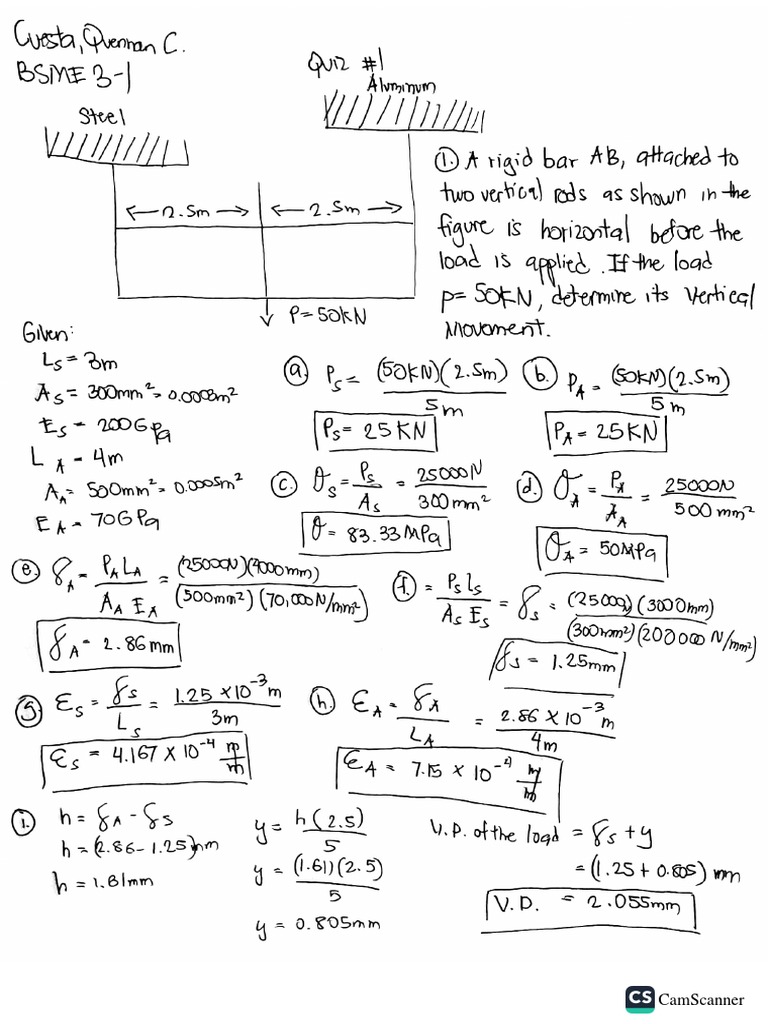 Cuesta, Quennan C.
BSME 3-1
QUIZ #1
Steel
Aluminum
← 2.5m → ← 2.5m →
P = 50KN
① A rigid bar AB, attached to
two vertical rods as shown in the
figure is horizontal before the
load is applied. If the load
p= 50KN, determine its vertical
Movement.
Given:
Ls = 3m
As = 300mm² = 0.0003m²
Es = 200GPa
LA = 4m
AA = 500mm² = 0.0005m²
EA = 70GPa
ⓐ Ps = (50KN)(2.5m) / 5m
Ps = 25KN
ⓑ PA = (50KN)(2.5m) / 5m
PA = 25KN
ⓒ σs = Ps / As = 25000N / 300mm²
σ = 83.33MPa
ⓓ σA = PA / AA = 25000N / 500mm²
σA = 50MPa
ⓔ δA = PA LA / AA EA = (25000N)(4000mm) / (500mm²)(70,000N/mm²)
δA = 2.86mm
ⓕ = Ps Ls / As Es = δs = (25000)(3000mm) / (300mm²)(200000N/mm²)
δs = 1.25mm
ⓖ Es = δs / Ls = 1.25 × 10⁻³m / 3m
Es = 4.167 × 10⁻⁴ m/m
ⓗ EA = δA / LA = 2.86 × 10⁻³m / 4m
EA = 7.15 × 10⁻⁴ m/m
ⓘ h = δA - δs
h = (2.86 - 1.25)mm
h = 1.61mm
y = h(2.5) / 5
y = (1.61)(2.5) / 5
y = 0.805mm
V.D. of the load = δs + y
= (1.25 + 0.805) mm
V.D. = 2.055mm
CS CamScanner